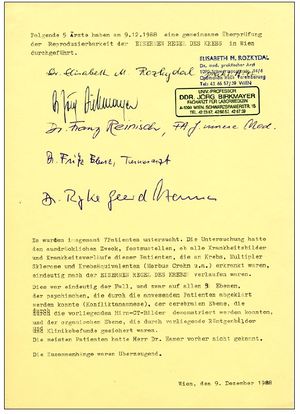 Folgende 5 Ärzte haben am 9.12.1988 eine gemeinsame Überprüfung
der Reproduzierbarkeit der EISERNEN REGEL DES KREBS in Wien
durchgeführt.
ELISABETH M. ROZKYDAL
Dr. med. praktischer Arzt
Dr. Elisabeth M. Rozkydal
UNIV.-PROFESSOR
DDR. JÖRG BIRKMAYER
FACHARZT FÜR LABORMEDIZIN
A-1090 WIEN, SCHWARZSPANIERSTR. 15
Dr. Jörg Birkmayer
Dr. Franz Reinisch, FA f. innere Med.
Dr. Ryke Geerd Hamer
Es wurden insgesamt 7Patienten untersucht. Die Untersuchung hatte
den ausdrücklichen Zweck, festzustellen, ob alle Krankheitsbilder
und Krankheitsverläufe dieser Patienten, die an Krebs, Multipler
Sklerose und Krebsequivalenten (Morbus Crohn u.a.) erkrankt waren,
eindeutig nach der EISERNEN REGEL DES KREBS verlaufen waren.
Dies war eindeutig der Fall, und zwar auf allen 3 Ebenen,
der psychischen, die durch die anwesenden Patienten abgeklärt
werden konnte (Konfliktanamnese), der cerebralen Ebene, die
durch die vorliegenden Hirn-CT-Bilder demonstriert werden konnten,
und der organischen Ebene, die durch vorliegende Röntgenbilder
und Klinikbefunde gesichert waren.
Die meisten Patienten hatte Herr Dr. Hamer vorher nicht gekannt.
Die Zusammenhänge waren überzeugend.
Wien, den 9. Dezember 1988